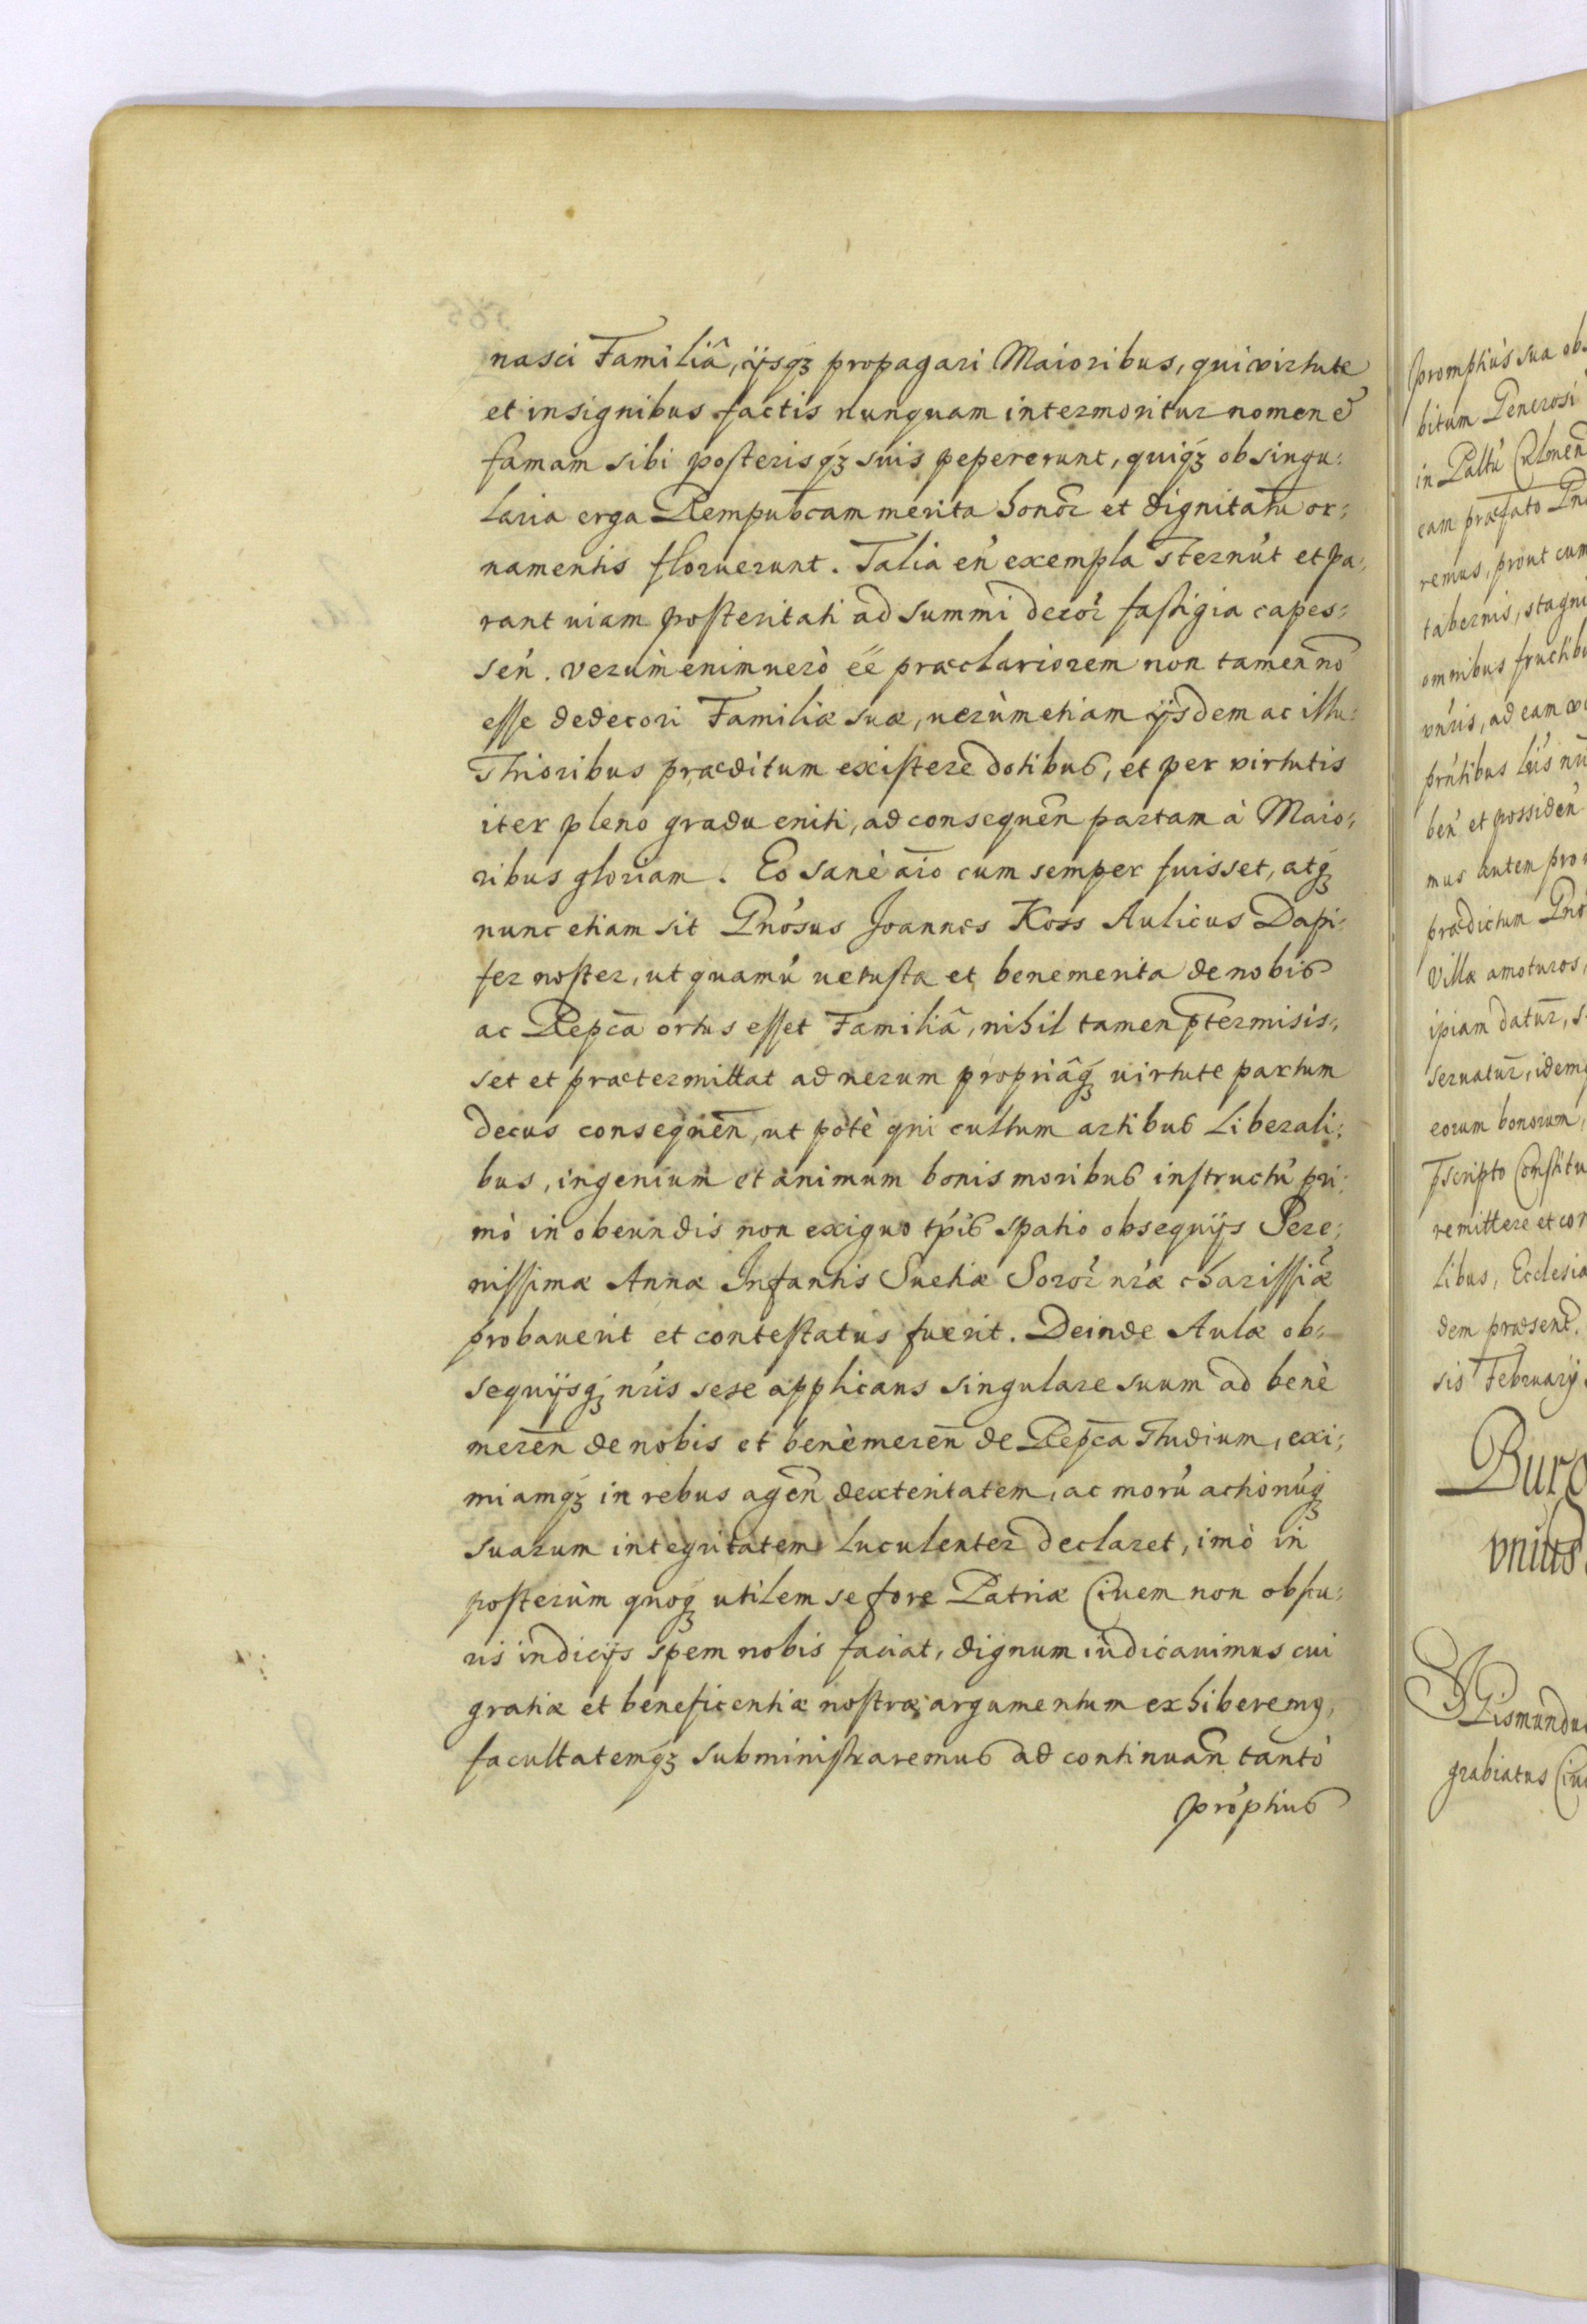 nasci Familiâ, ijsqʒ propagari Maioribus, qui virtute
et insignibus factis nunquam intermoritur nomen et
famam sibi posterisqʒ suis pepererunt, quiqʒ ob singu:
laria erga Rempubcam merita honor̃ et dignitatũ or:
namentis floruerunt. Talia eñ exempla sternũt et pa:
rant uiam posteritati ad summi decor̃ fastigia capes:
señ. verùm enimuerò ẽe præclariorem non tamen nõ
esse dedecori Familiæ suæ, uerùm etiam ijsdem ac illu:
strioribus præditum existere dotibus, et per virtutis
iter pleno gradu eniti, ad consequeñ partam à Maio:
ribus gloriam. Eo sanè aĩo cum semper fuisset, atqʒ
nunc etiam sit Gnõsus Joannes Koss Aulicus Dapi:
fer noster, ut quamũ uetusta et benemerita de nobis
ac Repcã ortus esset Familiâ, nihil tamen p̃termisis:
set et prætermittat ad uerum propriâqʒ uirtute partum
decus consequeñ, ut potè qui cultum artibus liberali:
bus, ingenium et animum bonis moribus instructũ pri:
mò in obeundis non exiguo tp̃is spatio obsequijs Sere:
nissimæ Annæ Infantis Suetiæ Soror̃ nr̃æ charissĩæ
probauerit et contestatus fuerit. Deinde Aulæ ob:
sequijsqʒ nr̃is sese applicans singulare suum ad benè
mereñ de nobis et benèmereñ de Repcã studium, exi:
miamqʒ in rebus ageñ dexteritatem, ac morũ actionũqʒ
suarum integritatem luculenter declaret, imò in
posterùm quoqʒ utilem se fore Patriæ Ciuem non obscu:
ris indicijs spem nobis faciat, dignum iudicauimus cui
gratiæ et beneficentiæ nostræ argumentum exhiberemꝰ,
facultatemqʒ subministraremus ad continuañ tantò
prõptius
promptiùs sua ob
bitum Generosi
in Paltũ Culmeñ
eam præfato Gn
remus, prout cum
tabernis, stagni
omnibus fructib
vñris, ad eam
prñtibus lr̃is nr̃
beñ et possideñ
mus autem pro
prædictum Gnõ
Villæ amoturos,
ipiam datur̃, s
seruatur̃, idemqʒ
eorum bonorum,
p̃scripto Constitu
remittere et con
libus, Ecclesia
dem præsent.
sis February
Burg
vnius
Sigismundus
grabiatus Ciui